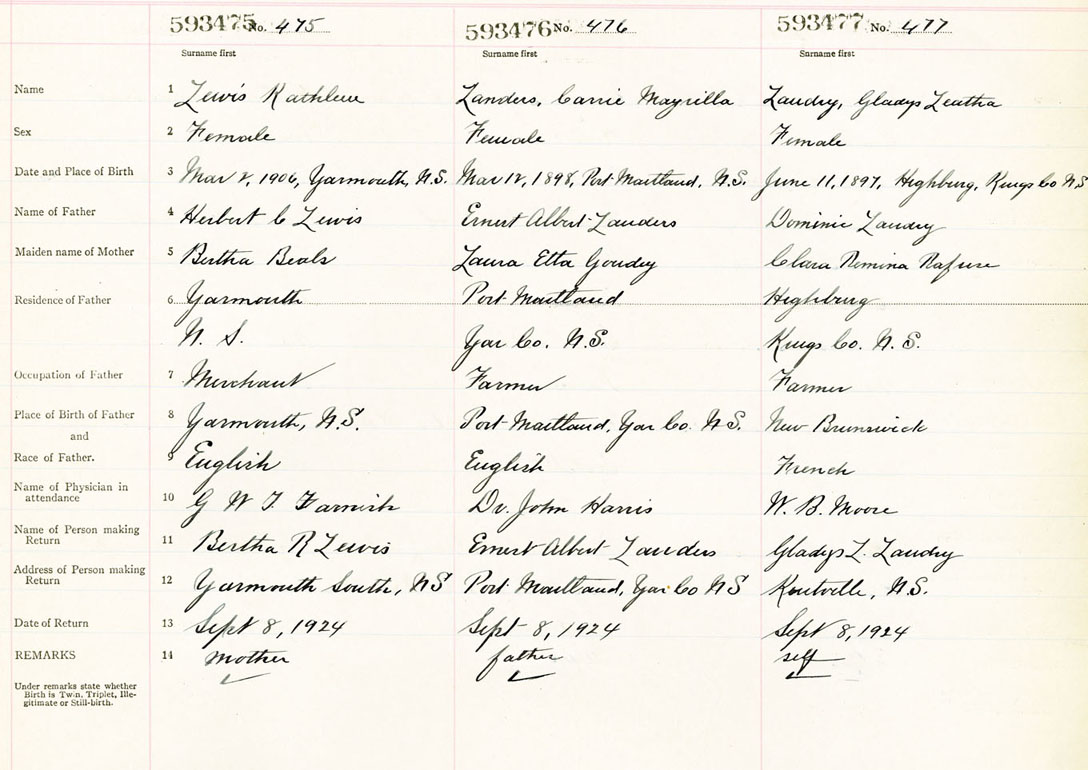 593475 No. 475 593476 No. 476 593477 No. 477
Surname first Surname first Surname first
Name 1 Lewis Kathleen Landers, Carrie Mayrilla Landry, Gladys Leatha
Sex 2 Female Female Female
Date and Place of Birth 3 Mar 2, 1906, Yarmouth, N.S. Mar 12, 1898, Port Maitland, N.S. June 11, 1897, Highbury, Kings Co N S
Name of Father 4 Herbert C Lewis Ernest Albert Landers Dominic Landry
Maiden name of Mother 5 Bertha Beals Laura Etta Goudey Clara Remina Rafuse
Residence of Father 6 Yarmouth Port Maitland Highbury
N. S. Yar Co. N.S. Kings Co. N. S.
Occupation of Father 7 Merchant Farmer Farmer
Place of Birth of Father 8 Yarmouth, N.S. Port Maitland, Yar Co. N.S. New Brunswick
and
Race of Father. 9 English English French
Name of Physician in
attendance 10 G W T Farnish Dr. John Harris W. B. Moore
Name of Person making
Return 11 Bertha R Lewis Ernest Albert Landers Gladys L. Landry
Address of Person making
Return 12 Yarmouth South, NS Port Maitland, Yar Co NS Kentville, N.S.
Date of Return 13 Sept 8, 1924 Sept 8, 1924 Sept 8, 1924
REMARKS 14 mother father self
Under remarks state whether
Birth is Twin, Triplet, Ille-
gitimate or Still-birth.